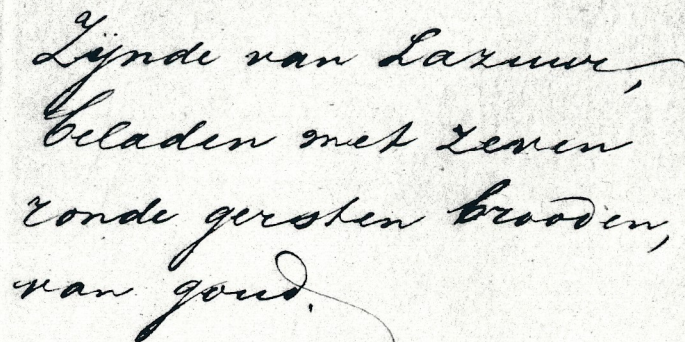 Zijnde van Lazuur,
beladen met zeven
ronde gersten brooden,
van goud.